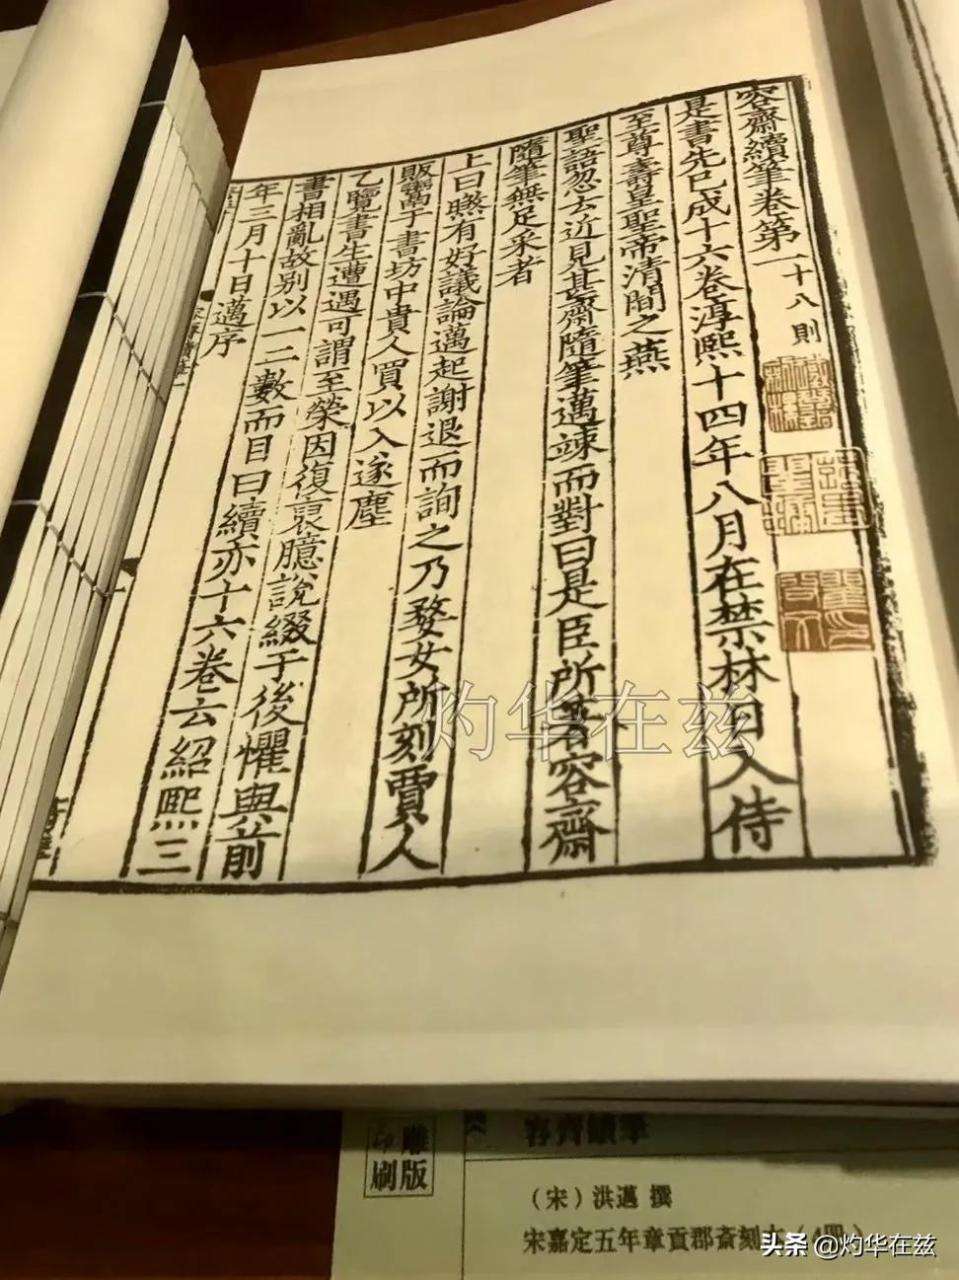 容齋續筆卷第一十八則
是書先已成十六卷淳熙十四年八月在禁林日入侍
至尊壽皇聖帝清閒之燕
聖語忽云近見甚齋隨筆邁竦而對曰是臣所著容齋
隨筆無足采者
上曰㬗有好議論邁起謝退而詢之乃婺女所刻賈人
販鬻于書坊中貴人買以入遂塵
乙覽書生遭遇可謂至榮因復裒臆說綴于後懼與前
書相亂故别以一二數而目曰續亦十六卷云紹熙三
年三月十日邁序
灼华在兹
雕版
印刷
容齊續筆
（宋）洪邁 撰
宋嘉定五年章貢郡斎刻
头条 @灼华在兹